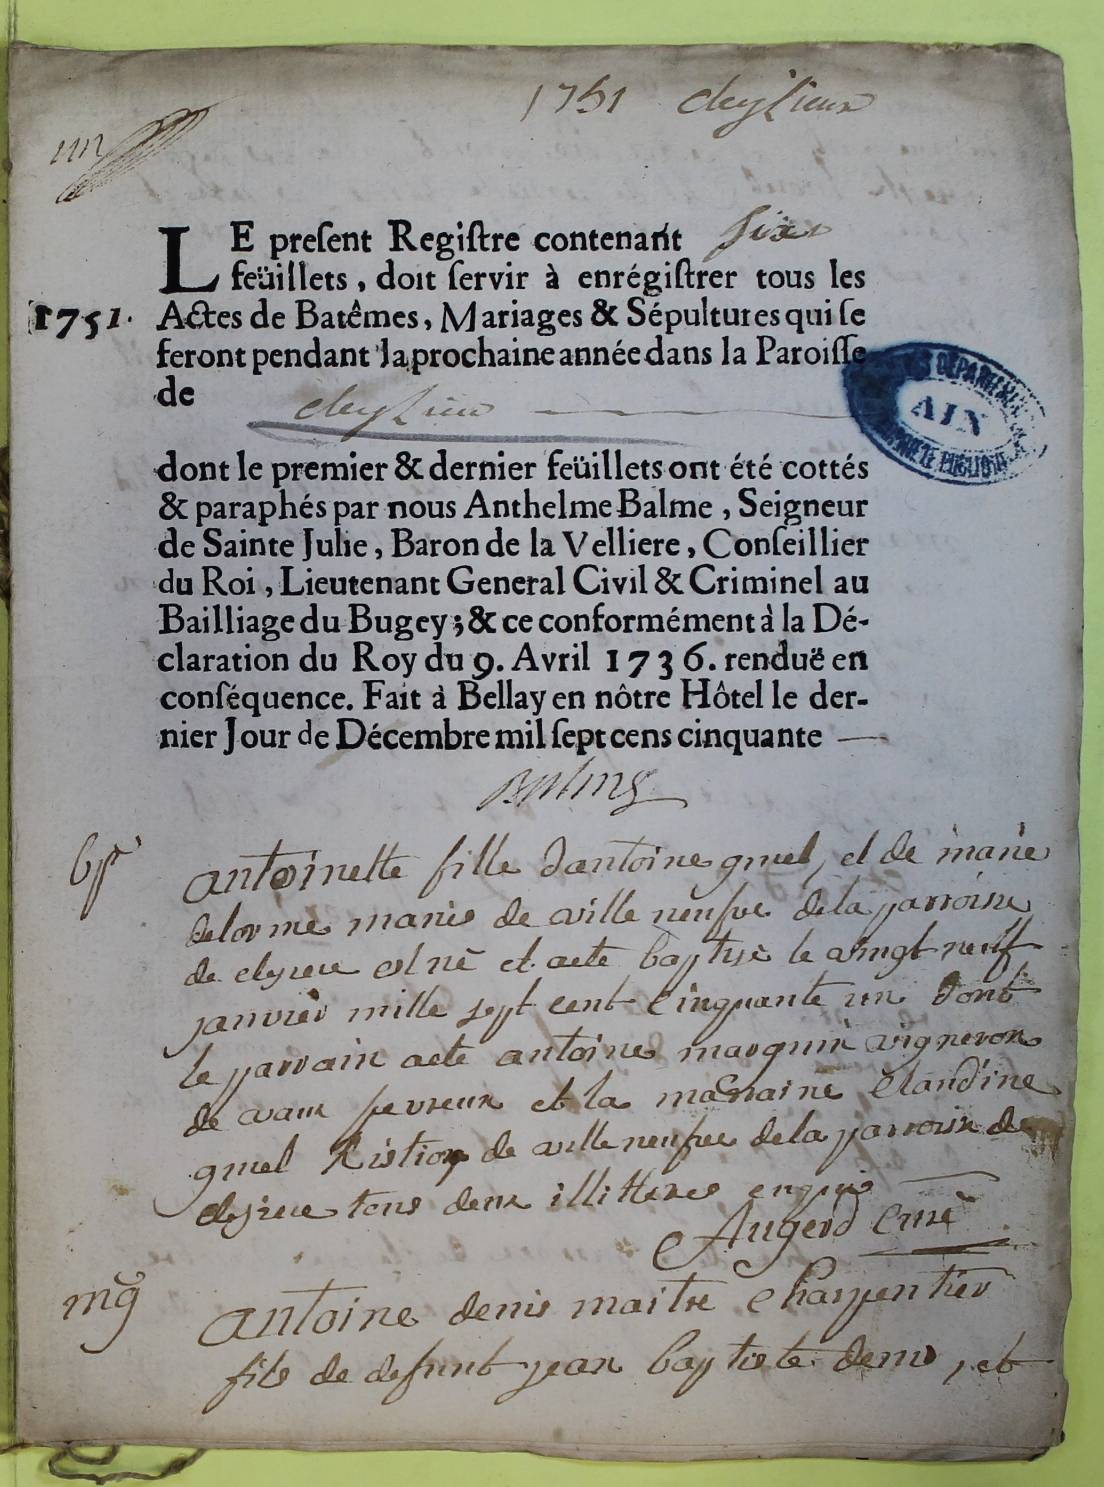 1751 cleyzieux
un
LE preſent Regiſtre contenant six
feüillets, doit ſervir à enrégiſtrer tous les
1751. Actes de Batêmes, Mariages & Sépultures qui ſe
feront pendant la prochaine année dans la Paroiſſe
de cleyzieu
DÉPARTEM
AIN
PROPRIÉTÉ PUBLIQUE
dont le premier & dernier feüillets ont été cottés
& paraphés par nous Anthelme Balme, Seigneur
de Sainte Julie, Baron de la Velliere, Conſeillier
du Roi, Lieutenant General Civil & Criminel au
Bailliage du Bugey; & ce conformément à la Dé-
claration du Roy du 9. Avril 1736. renduë en
conſéquence. Fait à Bellay en nôtre Hôtel le der-
nier Jour de Décembre mil ſept cens cinquante
Balme
bpt antoinette fille d'antoine gruel, et de marie
delorme mariés de ville neufve de la parroisse
de clezieu est né et a eté baptisé le vingt neuff
janvier mille sept cent cinquante un dont
le parrain a eté antoine marquin vigneron
de vaux fevreux et la marraine claudine
gruel de ville neufve de la parroisse de
clezieu tous deux illitterés enquis
Augerd curé
mg antoine denis maitre charpentier
fils de defunt jean baptiste denis, et